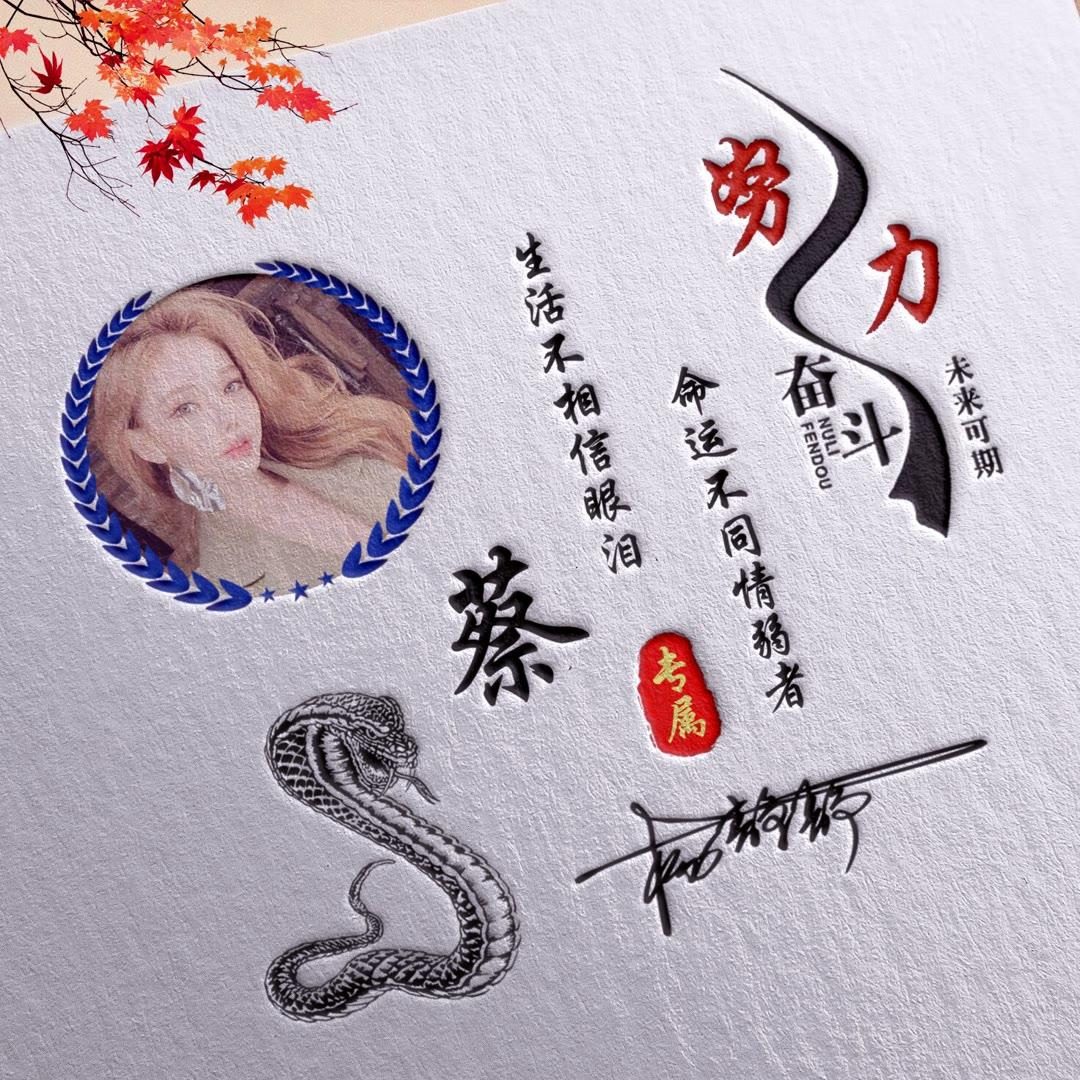 努力
奋斗
NULI
FENDOU
未来可期
生活不相信眼泪
命运不同情弱者
蔡
专属